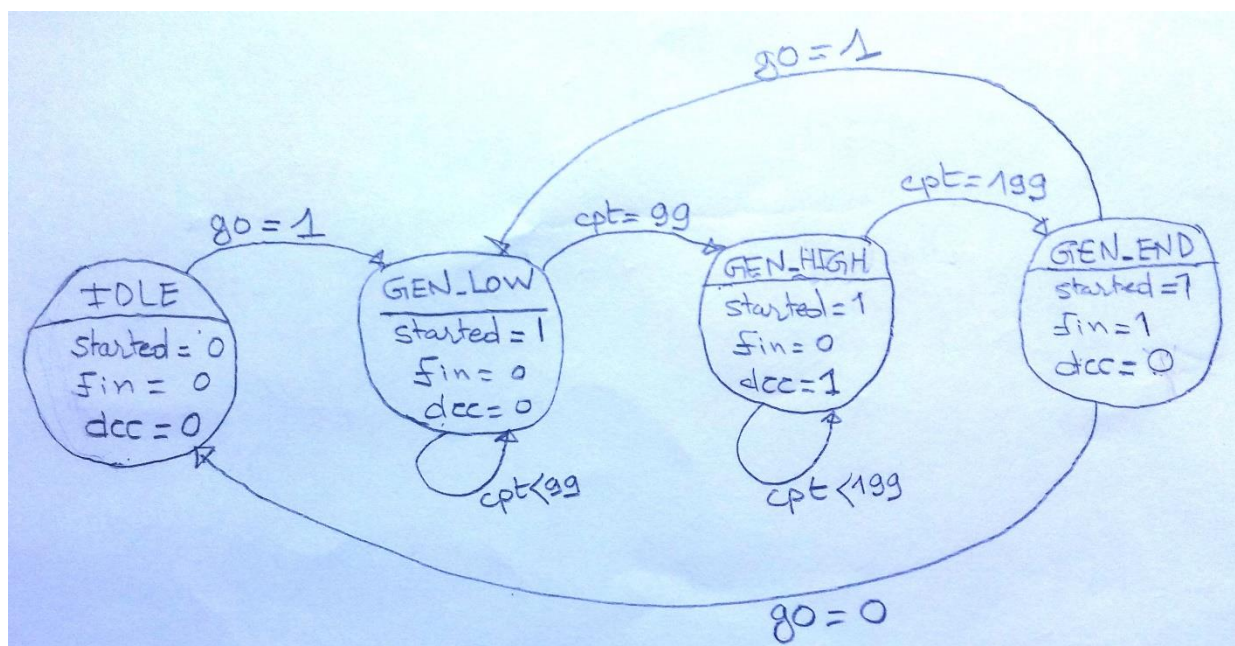 go=1
go=1
cpt=99
cpt=199
IDLE
started=0
fin=0
dcc=0
GEN_LOW
started=1
fin=0
dcc=0
cpt<99
GEN_HIGH
started=1
fin=0
dcc=1
cpt<199
GEN_END
started=1
fin=1
dcc=0
go=0